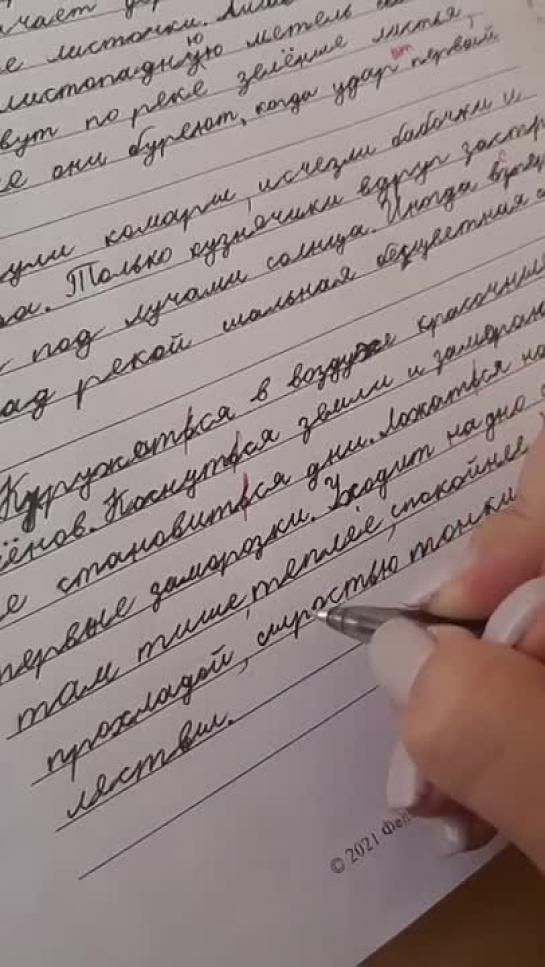 листочки.
листопадную метель
вут по реке зелёные листья,
они буреют, когда удар от первой
комары, исчезли бабочки и
Только кузнечики вдруг
под лучами солнца. Иногда
ад рекой шальная обцветная
Кружаться в воздухе красочный
ёнов. Коснуться земли и замеран
е становиться дни. Ложаться на
первые заморозки. Уходит на дно
там тише, теплее, спокойнее
прохладой, сыростью тонки
листвы.
© 2021